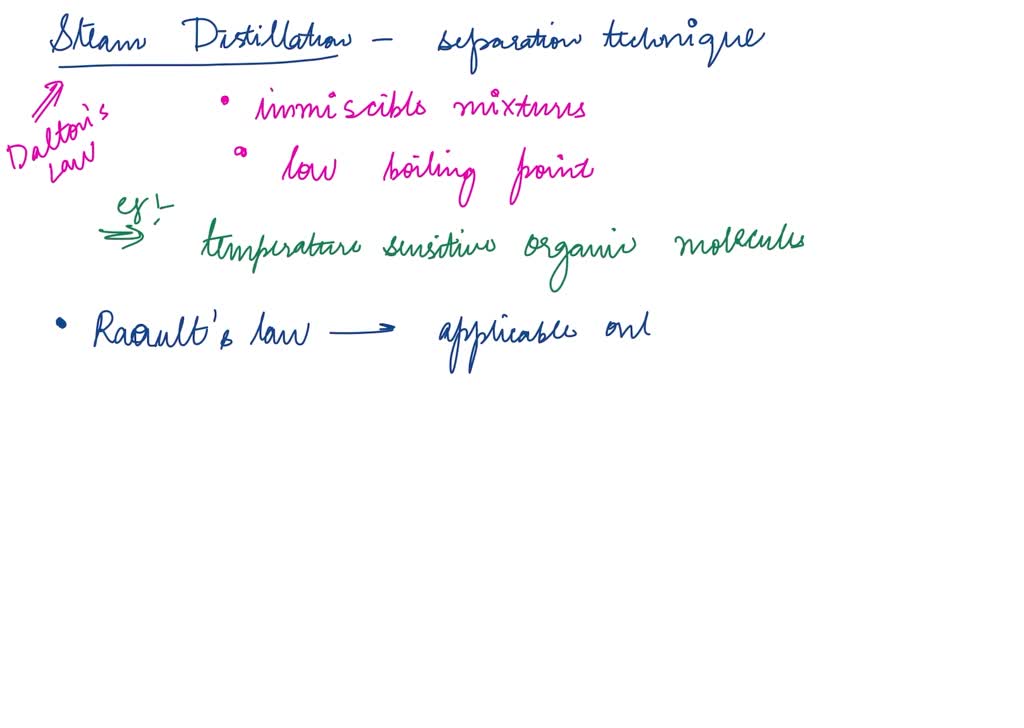 Steam Distillation - separation technique
Dalton's
Law
• immiscible mixtures
• low boiling point
eg:-
⇒ temperature sensitive organic molecules
• Raoult's law → applicable onl